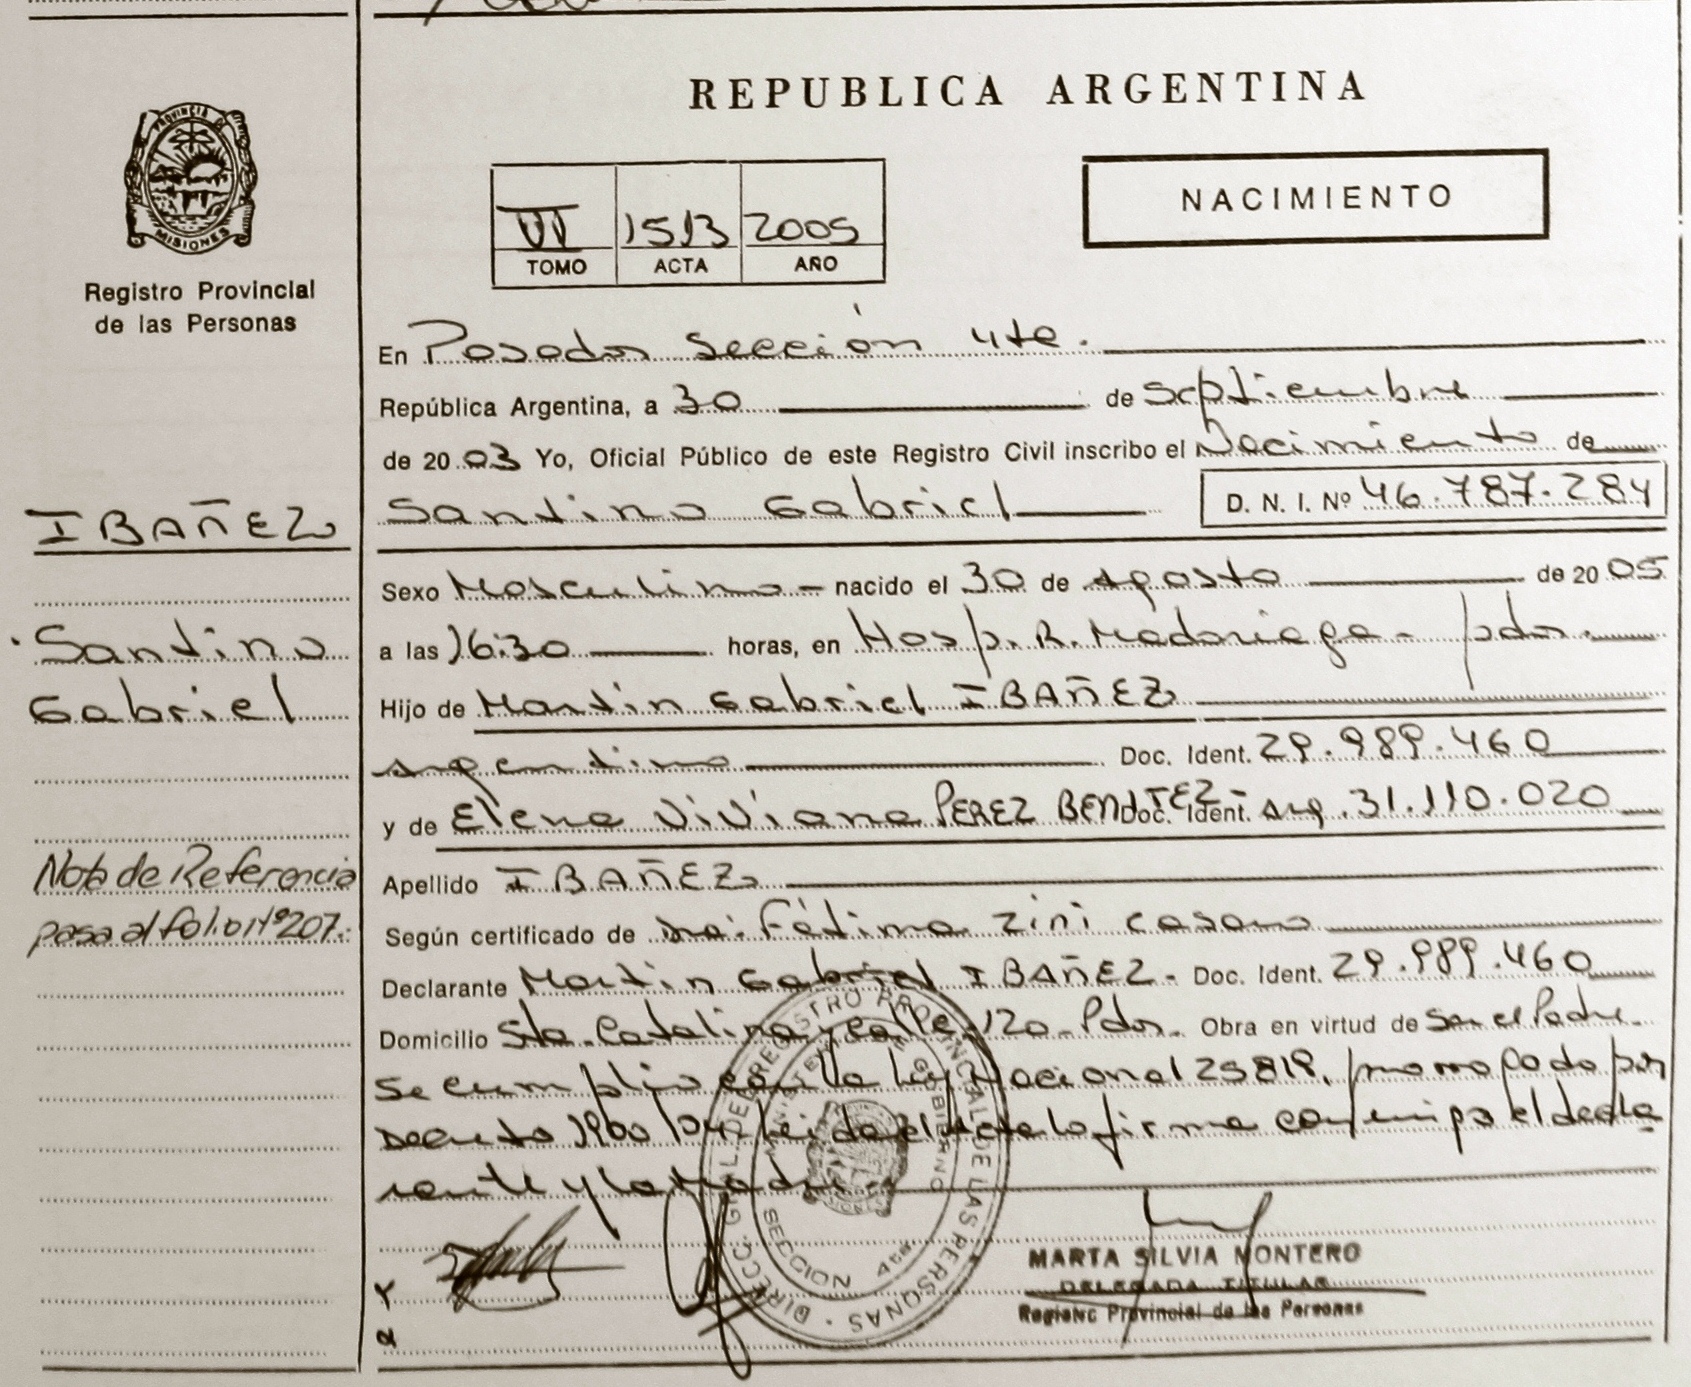 PROVINCIA DE
MISIONES
Registro Provincial
de las Personas
REPUBLICA ARGENTINA
NACIMIENTO
VI 1513 2005
TOMO ACTA AÑO
En Posadas Sección 4ta.
República Argentina, a 30 de septiembre
de 2003 Yo, Oficial Público de este Registro Civil inscribo el Nacimiento de
Santino Gabriel D. N. I. Nº 46.787.284
IBAÑEZ
Sexo Masculino - nacido el 30 de agosto de 2005
Santino
a las 16:30 horas, en Hosp. R. Madariaga - pdas.
Gabriel
Hijo de Martin Gabriel IBAÑEZ
argentino Doc. Ident. 29.989.460
y de Elena Viviana PEREZ BENITEZ Doc. Ident. arg. 31.110.020
Nota de Referencia
Apellido IBAÑEZ
pasa al folio Nº 207.
Según certificado de Dra. Fátima Zini Casano
Declarante Martin Gabriel IBAÑEZ - Doc. Ident. 29.989.460
Domicilio Sta. Catalina y calle 120 - Pdas. Obra en virtud de Ser el Padre.
Se cumplió con la Ley Nacional 25819, por
Decreto 1900/04, Leida el acta la firma conmigo el decla
rante y la Madre.
DIRECC. GRAL. DE REGISTRO PROVINCIAL DE LAS PERSONAS
MINISTERIO DE GOBIERNO
SECCION 4ta
MARTA SILVIA MONTERO
DELEGADA TITULAR
Registro Provincial de las Personas